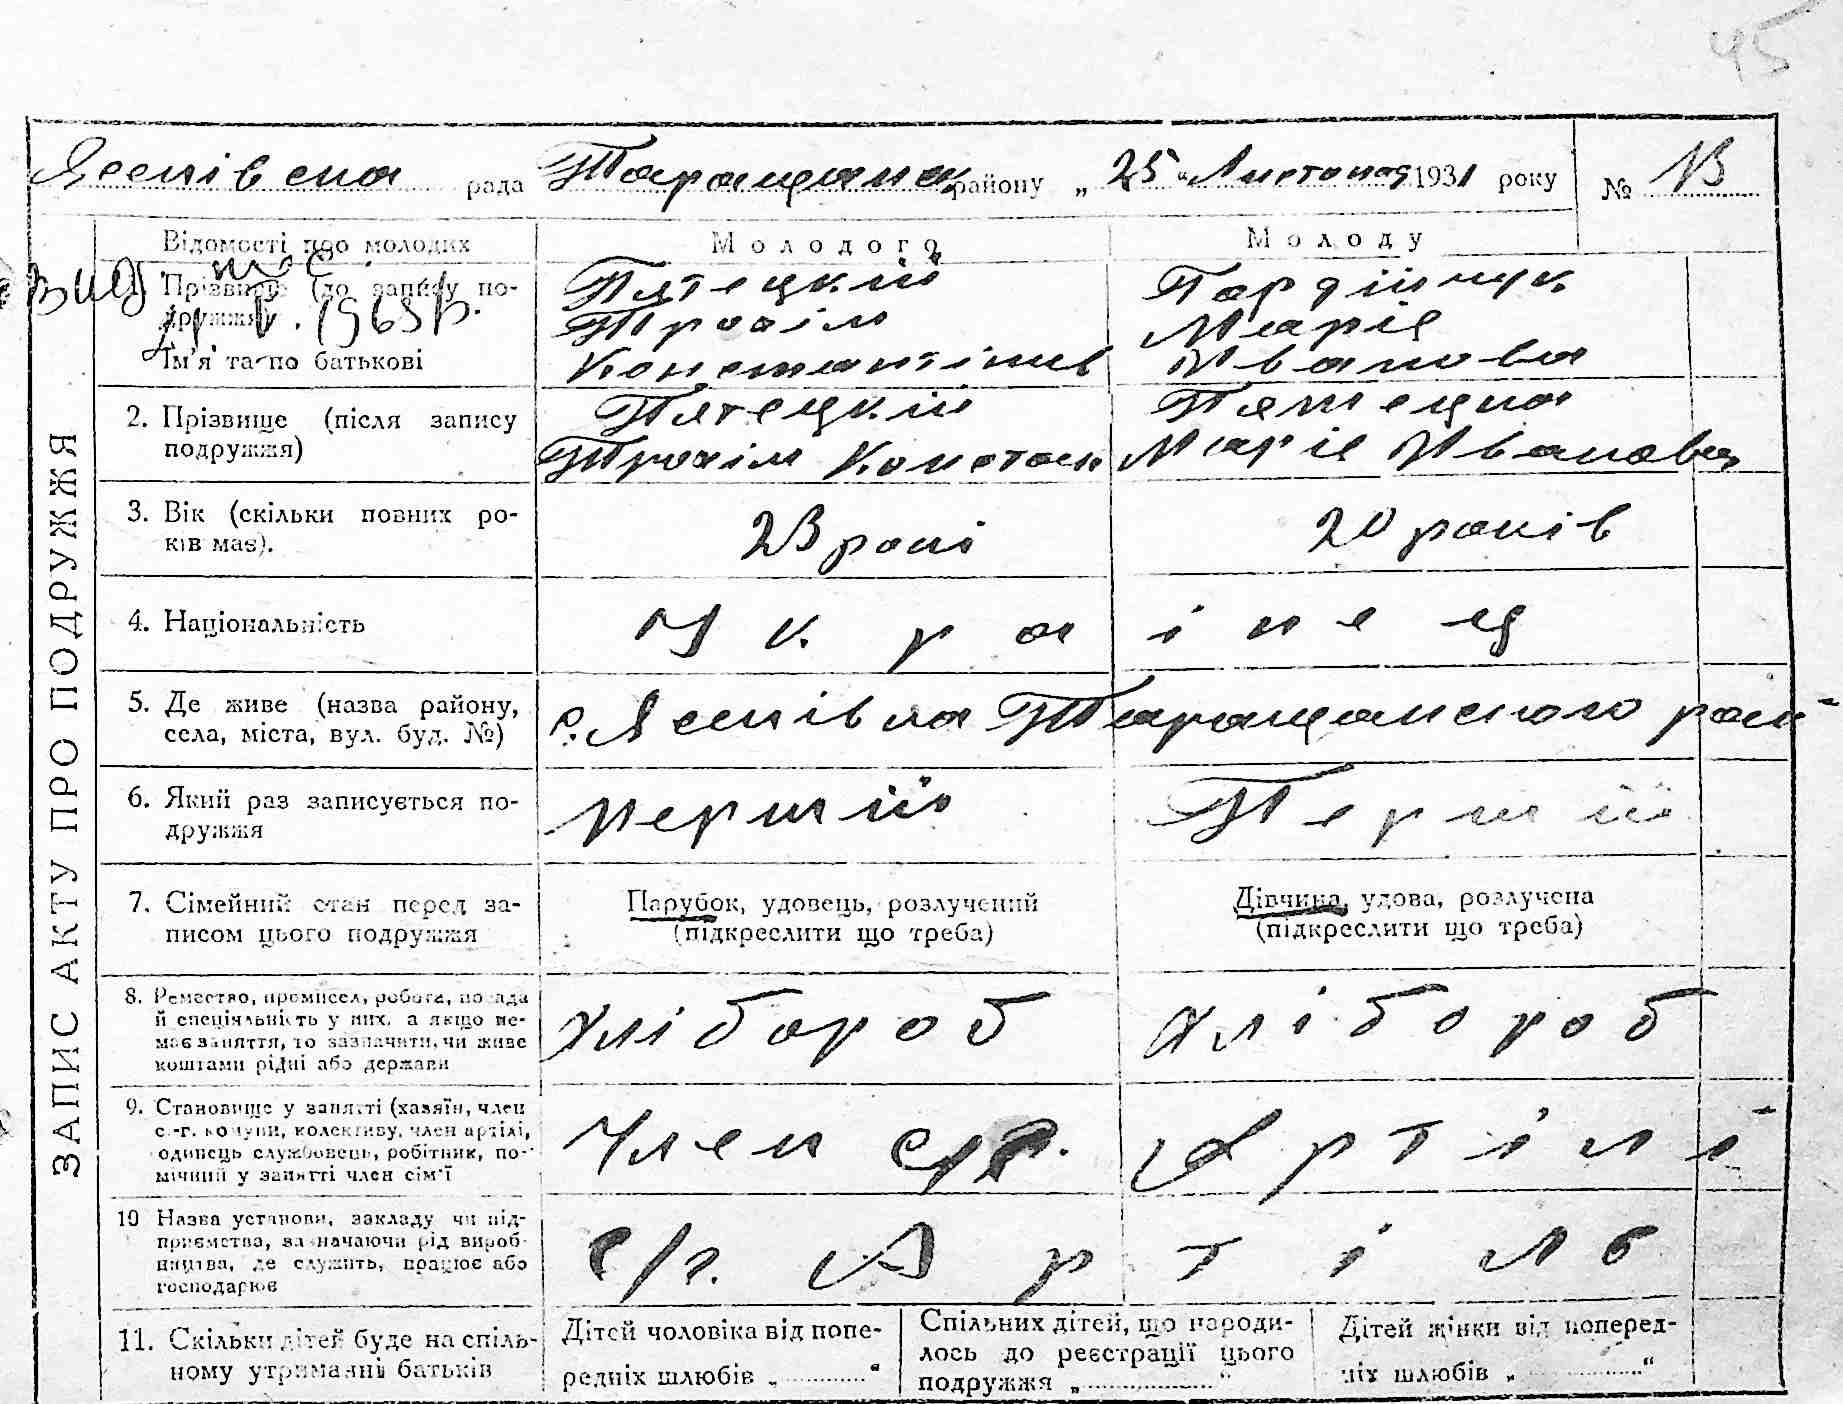 45
Ясенівська рада Таращанск району „25“ Листопад 1931 року № 13
ЗАПИС АКТУ ПРО ПОДРУЖЖЯ
Відомості про молодих Молодого Молоду
1965р.
Прізвище (до запису подружжя) Пятецкий Гордійчук
Трохім Марія
Ім'я та по батькові Константінів Иванова
2. Прізвище (після запису Пятецкий Пятецка
подружжя) Трохім Констан Марія Иванова
3. Вік (скільки повних ро-
ків має). 23 рокі 20 років
4. Національність Украінец
5. Де живе (назва району,
села, міста, вул. буд. №) с. Ясенівка Таращанского рай-
6. Який раз записується по-
дружжя перший Перший
7. Сімейний стан перед за- Парубок, удовець, розлучений Дівчина, удова, розлучена
писом цього подружжя (підкреслити що треба) (підкреслити що треба)
8. Ремество, промисел, робота, посада
й спеціяльність у них, а якщо не-
має заняття, то зазначити, чи живе
коштами рідні або держави хлібороб хлібороб
9. Становище у занятті (хазяїн, член
с.-г. комуни, колективу, член артілі,
одинець службовець, робітник, по-
мічний у занятті член сім'ї Член с/г. Артілі
10 Назва установи, закладу чи під-
приємства, зазначаючи рід вироб-
ництва, де служить, працює або
господарює с/г. Артіль
11. Скільки дітей буде на спіль-
ному утриманні батьків
Дітей чоловіка від попе-
редніх шлюбів „ “
Спільних дітей, що народи-
лось до реєстрації цього
подружжя „ “
Дітей жінки від поперед-
ніх шлюбів „ “